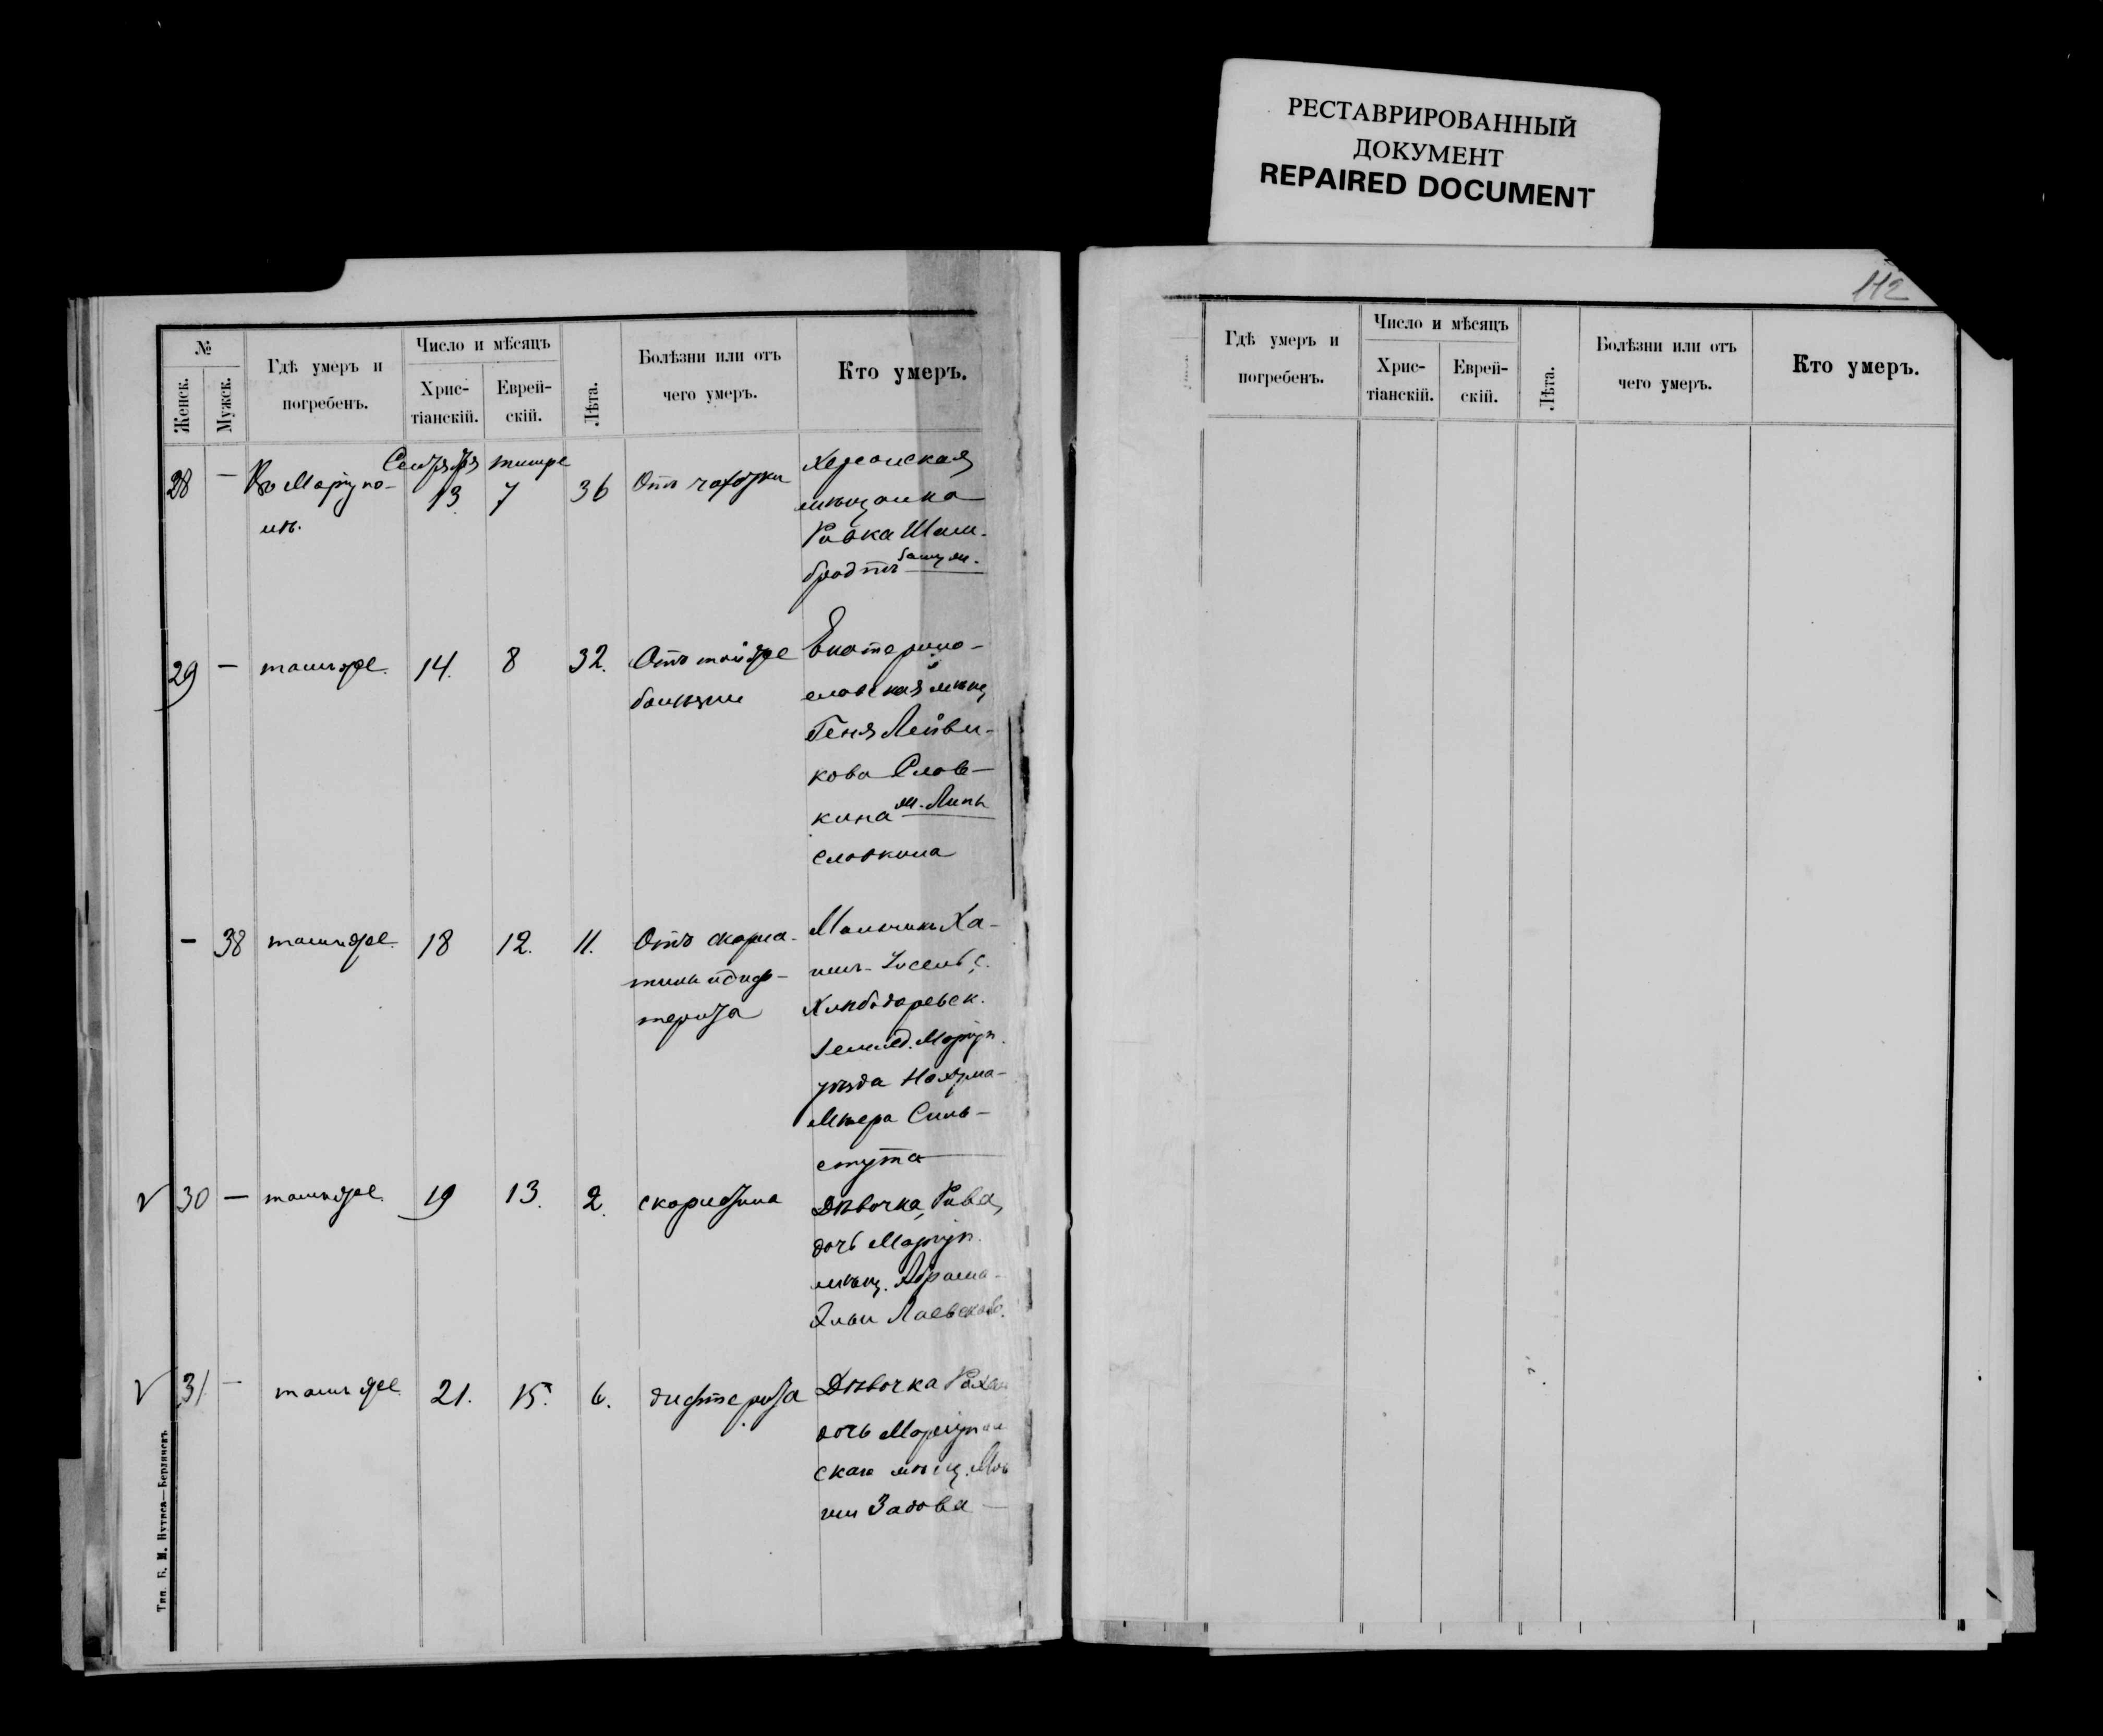 РЕСТАВРИРОВАННЫЙ
ДОКУМЕНТ
REPAIRED DOCUMENT
112
№
Женск.
Мужск.
Гдѣ умеръ и
погребенъ.
Число и мѣсяцъ
Хрис-
тіанскій.
Еврей-
скій.
Лѣта.
Болѣзни или отъ
чего умеръ.
Кто умеръ.
Сентября тишре
28 — Въ Маріупо-
лѣ.
13 7 36 Отъ чахотки
Херсонская
мѣщанка
Ривка Шам-
бродтъ
29 — тамъ же. 14. 8 32. Отъ той же
болѣзни
Екатерино-
славская мѣщ
Геня Лейви-
кова Слов-
кина
Словкина
— 38 тамъ же. 18 12. 11. Отъ скарла-
тины и диф-
терита
Мальчикъ Ха-
имъ
Хлѣбодаровск.
Землед. Маріуп.
уѣзда Нахума-
Меера Силь-
30 — тамъ же. 19 13. 2. скарлатина
Дѣвочка, Рива,
дочь Маріуп.
мѣщ. Абрама-
Эльи Лаевскаго.
31. — тамъ же. 21. 15. 6. дифтерита
Дѣвочка Рахель
дочь Маріуполь
скаго мѣщ.
Задова —
Тип. Б. М. Нутиса—Бердянскъ
Гдѣ умеръ и
погребенъ.
Число и мѣсяцъ
Хрис-
тіанскій.
Еврей-
скій.
Лѣта.
Болѣзни или отъ
чего умеръ.
Кто умеръ.